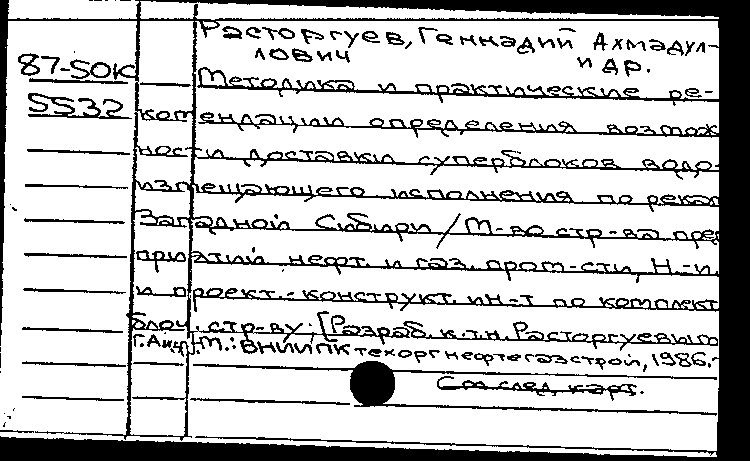 Расторгуев, Геннадий Ахмадул-
лович и др.
87-50К Методика и практические ре-
5532 комендации определения возмож
ности доставки суперблоков водо-
измещающего исполнения по рекам
Западной Сибири / М-во стр-ва пред
приятий нефт. и газ. пром-сти, Н.-и.
и проект.-конструкт. ин-т по комплект
блоч. стр-ву; [Разраб. к.т.н. Расторгуевым
Г.А. и др.]. М.: ВНИИПК техоргнефтегазстрой, 1986.-
См след. карт.